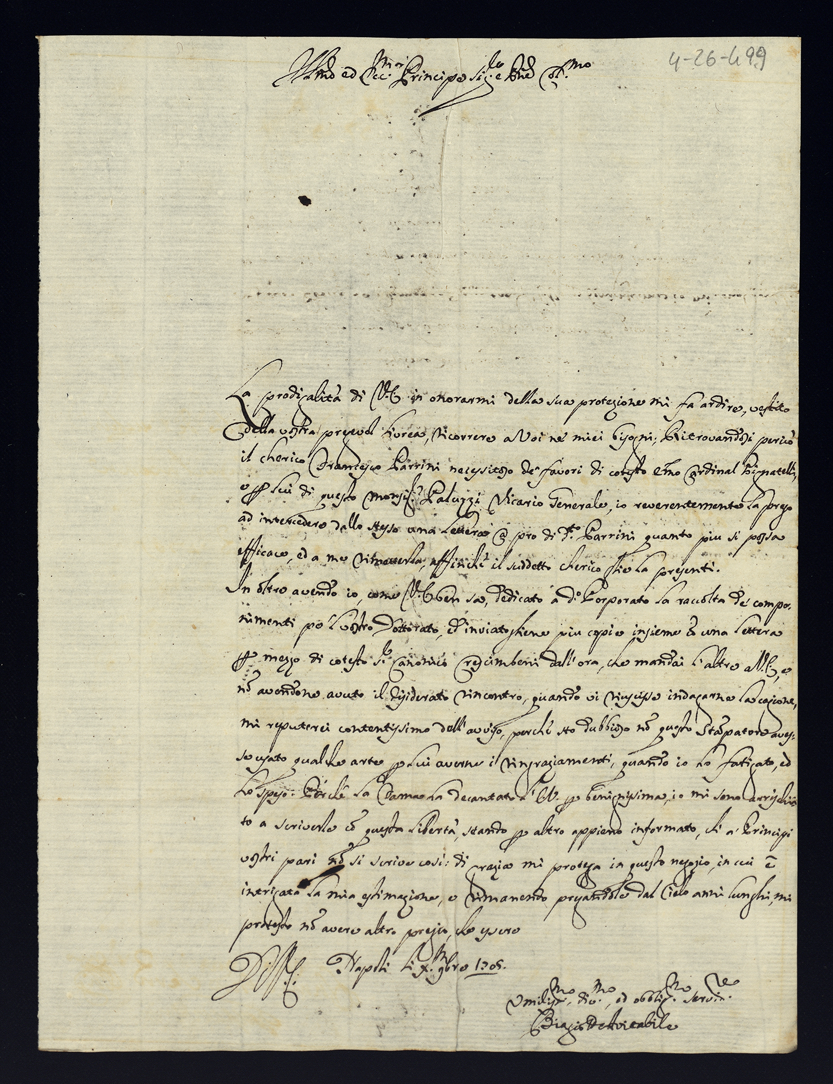 4-26-499
Ill.mo ed Ecc.mo Principe Sig.re e Pne Col.mo
La prodigalità di V.E. in onorarmi della sua protezione mi fa ardire, vestito
della vostra pregevol livrea, ricorrere a Voi ne' miei bisogni; Ritrovandosi perciò
il cherico Francesco Parrini necessitoso de' favori di cotesto E.mo Cardinal Pignatelli,
e di questo Monsig.r Paluzzi Vicario Generale, io reverentemente la prego
ad intercedere dallo stesso una lettera a pro di d.o Parrini quanto più si possa
efficace, ed a me rimetterla, affinché il suddetto cherico la presenti.
In oltre avendo io, come V.E. ben sa, dedicato a d.o Porporato la raccolta de' compo-
nimenti pe 'l vostro Dottorato, ed inviatogliene più copie insieme con una lettera
p mezzo di cotesto S.r Canonico Crescimbeni dall'ora, che mandai l'altre all'E.V., e
non avendone avuto il desiderato rincontro, quando vi riuscisse indagarne la cagione,
mi reputerei contentissimo dell'avviso, perché sto dubbioso non questo Stampatore aves-
se usato qualche arte p lui averne i ringraziamenti, quando io ho fatigato, ed
ho speso. Perché la Fama la decanta p benignissima, io mi sono arrischia-
to a scriverle con questa libertà, stando p altro appieno informato, che a' Principi
vostri pari non si scrive così: di grazia mi protega in questo negozio, in cui è
intrigata la mia estimazione, e rimanendo pregandole dal Cielo anni lunghi, mi
protesto non avere altro pregio, che essere
Di V.E. Napoli li X 9bre 1705.
Umiliss.mo, div.mo, ed obblig.mo Serv.re
Biagio De Avitabile